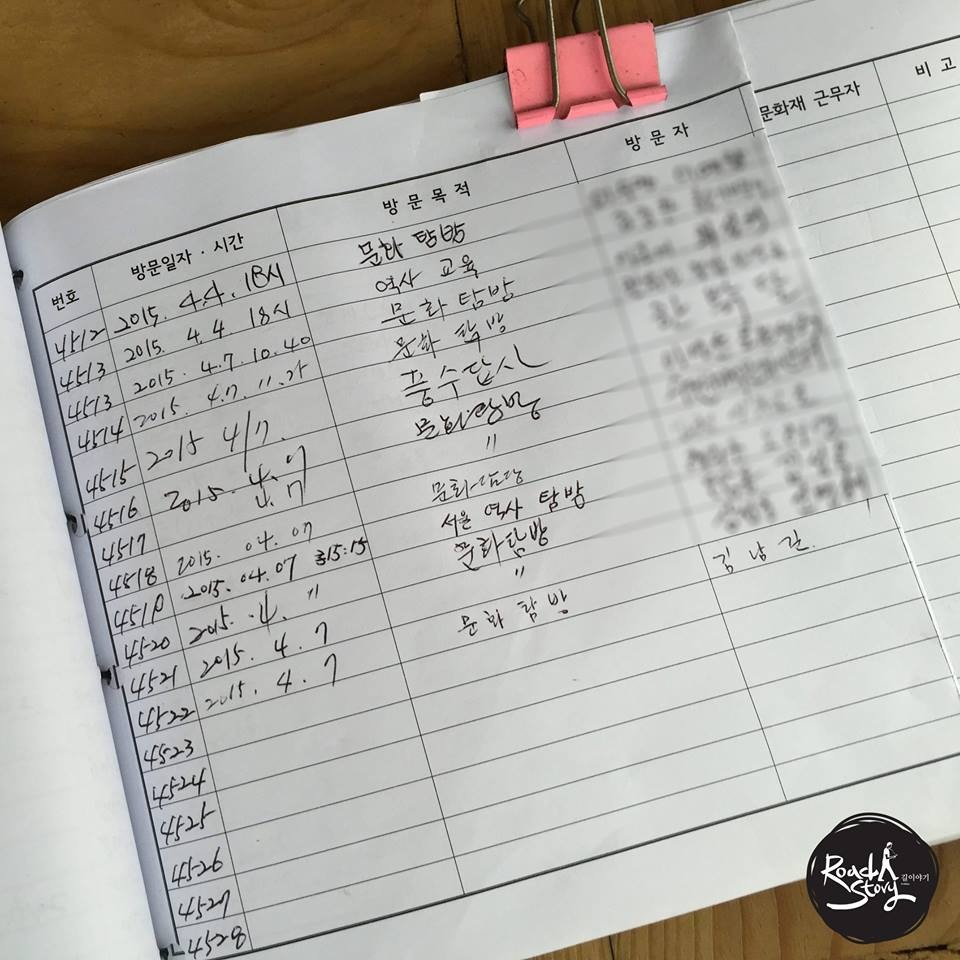 번호 방문일자 · 시간 방문목적 방문자 문화재 근무자 비고
4512 2015. 4.4. 18시 문화 탐방
4513 2015. 4.4 18시 역사 교육
4513 2015. 4.7. 10.40 문화 탐방
4514 2015. 4.7. 문화 탐방
4515 2015 4/7. 풍수답시
4516 2015. 문화탐방
4517 〃
4518 2015. 04. 07 문화탐방
4519 2015. 04. 07 15:15 서울 역사 탐방
4520 2015. 4. 〃 문화탐방
4521 2015. 4. 7 〃
4522 2015. 4. 7 문화 탐방 김남길.
4523
4524
4525
4526
4527
4528
Road Story 길이야기